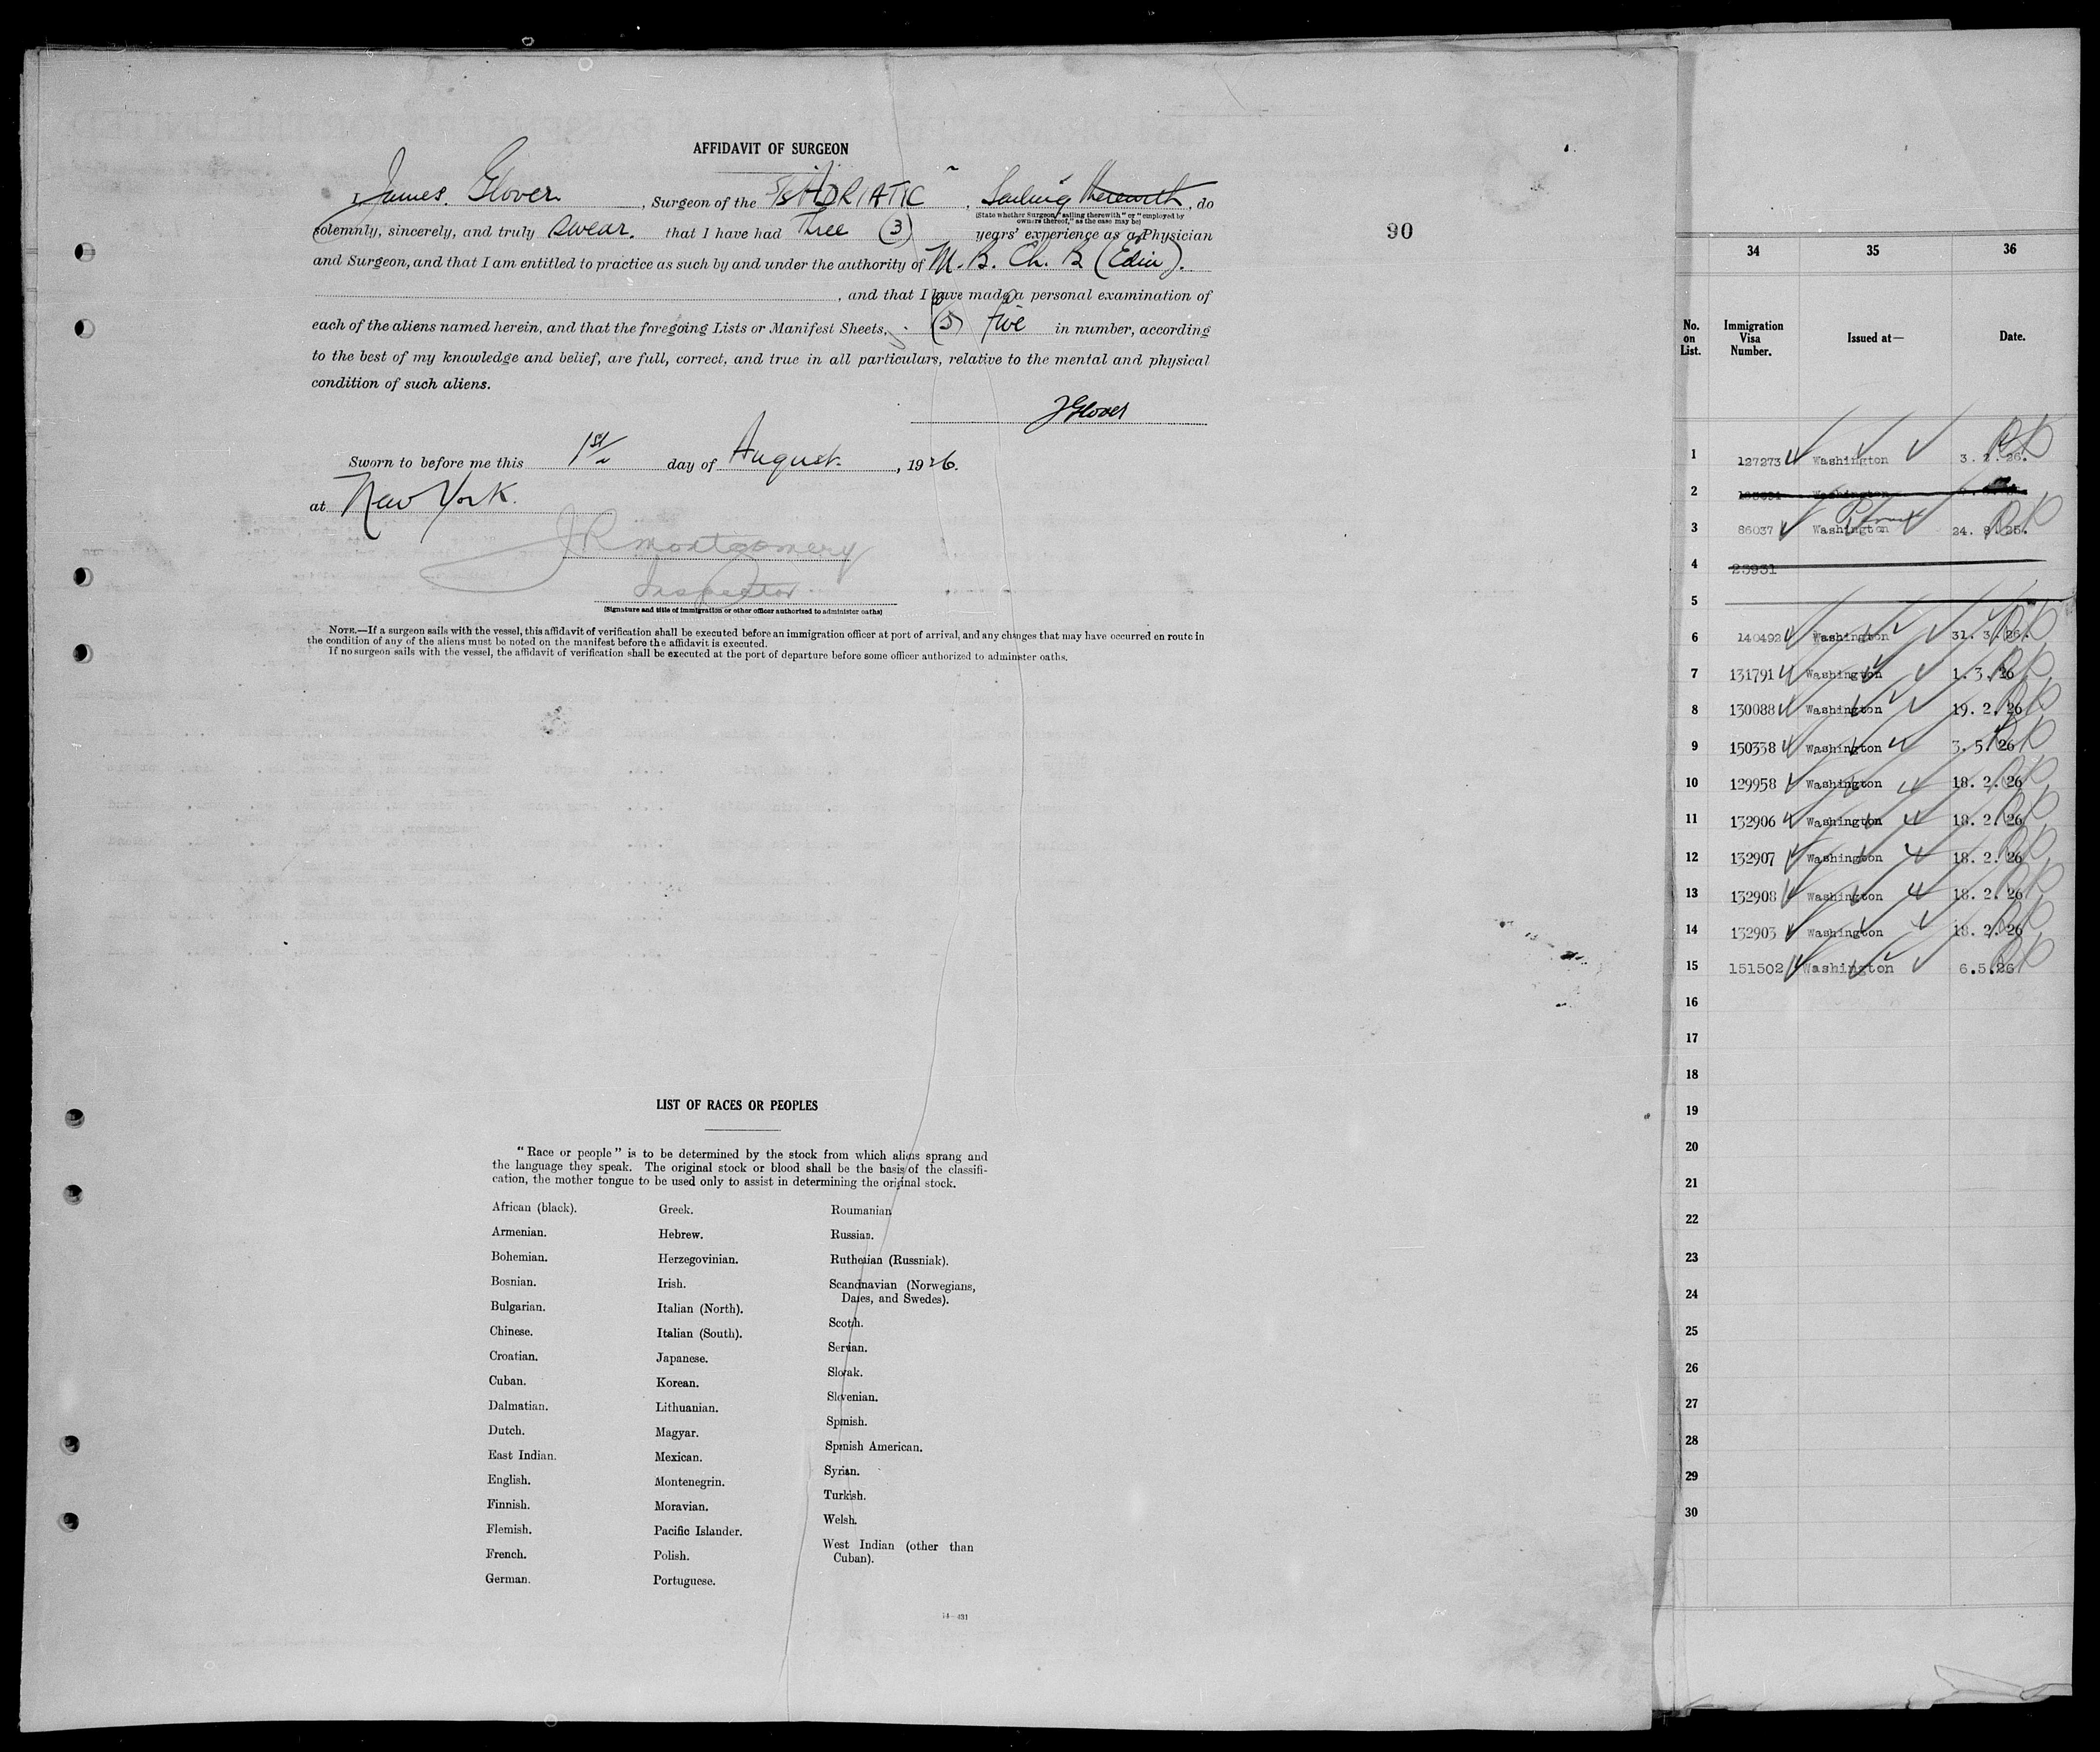 AFFIDAVIT OF SURGEON
I, James Glover, Surgeon of the S/S ADRIATIC, Sailing therewith, do
(State whether Surgeon "sailing therewith" or "employed by
owners thereof," as the case may be)
solemnly, sincerely, and truly swear. that I have had Three (3) years' experience as a Physician
and Surgeon, and that I am entitled to practice as such by and under the authority of M. B. Ch. B (Edin).
, and that I have made a personal examination of
each of the aliens named herein, and that the foregoing Lists or Manifest Sheets, (5) five in number, according
to the best of my knowledge and belief, are full, correct, and true in all particulars, relative to the mental and physical
condition of such aliens.
J Glover
Sworn to before me this 1st day of August, 1926.
at New York.
J R Montgomery
Inspector
(Signature and title of immigration or other officer authorized to administer oaths)
NOTE.—If a surgeon sails with the vessel, this affidavit of verification shall be executed before an immigration officer at port of arrival, and any changes that may have occurred en route in
the condition of any of the aliens must be noted on the manifest before the affidavit is executed.
If no surgeon sails with the vessel, the affidavit of verification shall be executed at the port of departure before some officer authorized to administer oaths.
90
LIST OF RACES OR PEOPLES
"Race or people" is to be determined by the stock from which aliens sprang and
the language they speak. The original stock or blood shall be the basis of the classifi-
cation, the mother tongue to be used only to assist in determining the original stock.
African (black).
Armenian.
Bohemian.
Bosnian.
Bulgarian.
Chinese.
Croatian.
Cuban.
Dalmatian.
Dutch.
East Indian.
English.
Finnish.
Flemish.
French.
German.
Greek.
Hebrew.
Herzegovinian.
Irish.
Italian (North).
Italian (South).
Japanese.
Korean.
Lithuanian.
Magyar.
Mexican.
Montenegrin.
Moravian.
Pacific Islander.
Polish.
Portuguese.
Roumanian
Russian.
Ruthenian (Russniak).
Scandinavian (Norwegians,
Danes, and Swedes).
Scotch.
Servian.
Slovak.
Slovenian.
Spanish.
Spanish American.
Syrian.
Turkish.
Welsh.
West Indian (other than
Cuban).
14—431
34 35 36
No. on List. Immigration Visa Number. Issued at— Date.
1 127273 Washington 3. 2. 26.
2 Washington
3 86037 Washington 24. 8. 25.
4 23931
5
6 140492 Washington 31. 3. 26.
7 131791 Washington 1. 3. 26
8 130088 Washington 19. 2. 26
9 150338 Washington 3. 5. 26
10 129958 Washington 18. 2. 26
11 132906 Washington 18. 2. 26
12 132907 Washington 18. 2. 26
13 132908 Washington 18. 2. 26
14 132903 Washington 18. 2. 26
15 151502 Washington 6.5.26
16
17
18
19
20
21
22
23
24
25
26
27
28
29
30